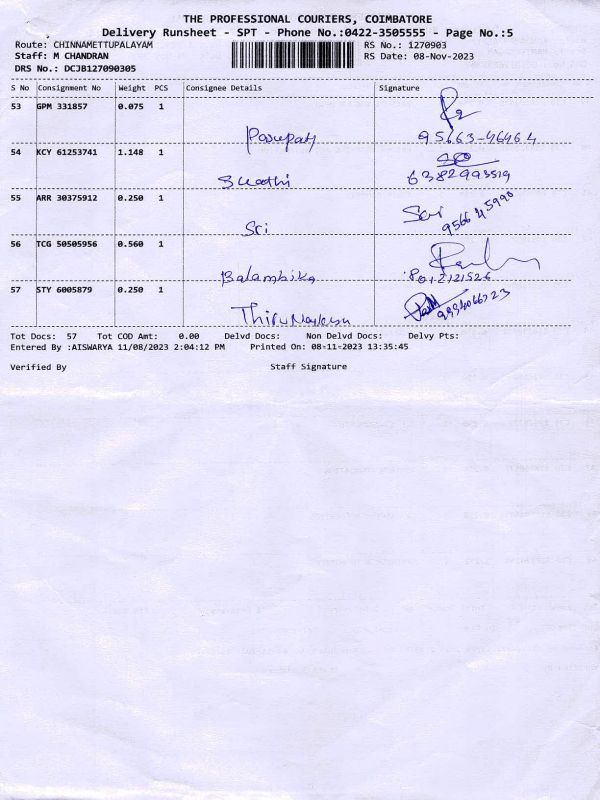 THE PROFESSIONAL COURIERS, COIMBATORE
Delivery Runsheet - SPT - Phone No.:0422-3505555 - Page No.:5
Route: CHINNAMETTUPALAYAM RS No.: 1270903
Staff: M CHANDRAN RS Date: 08-Nov-2023
DRS No.: DCJB127090305
S No Consignment No Weight PCS Consignee Details Signature
53 GPM 331857 0.075 1
Pasupaty 95663-46464
54 KCY 61253741 1.148 1
Swathi 6382993519
55 ARR 30375912 0.250 1
Sri Sri 956645990
56 TCG 50505956 0.560 1
Balambika 8012121526
57 STY 6005879 0.250 1
9994066723
Tot Docs: 57 Tot COD Amt: 0.00 Delvd Docs: Non Delvd Docs: Delvy Pts:
Entered By :AISWARYA 11/08/2023 2:04:12 PM Printed On: 08-11-2023 13:35:45
Verified By Staff Signature